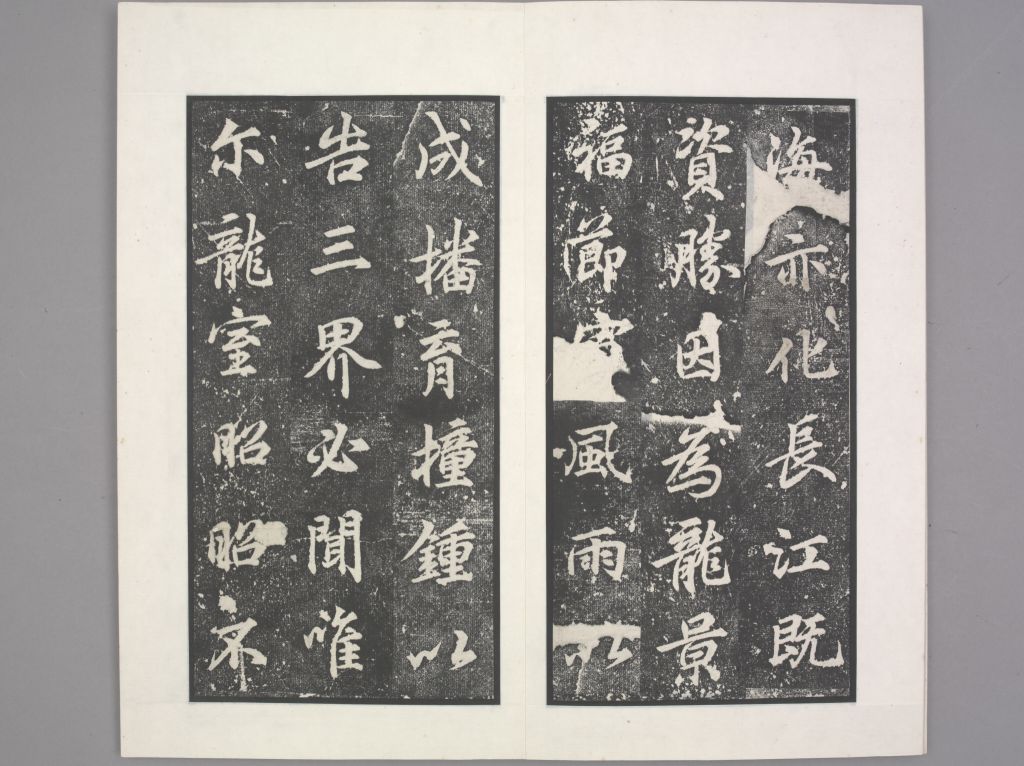 海亦化長江既
資勝因為龍景
福節宣風雨以
成播育撞鍾以
告三界必聞唯
尓龍室昭昭不